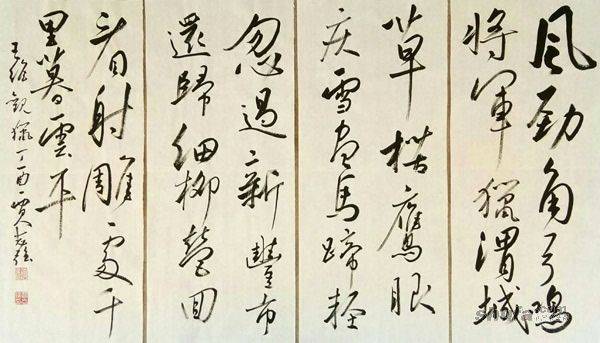 風勁角弓鳴
將軍獵渭城
草枯鷹眼
疾雪盡馬蹄輕
忽過新豐市
還歸細柳營回
看射雕處千
里暮雲平
王維觀獵丁酉